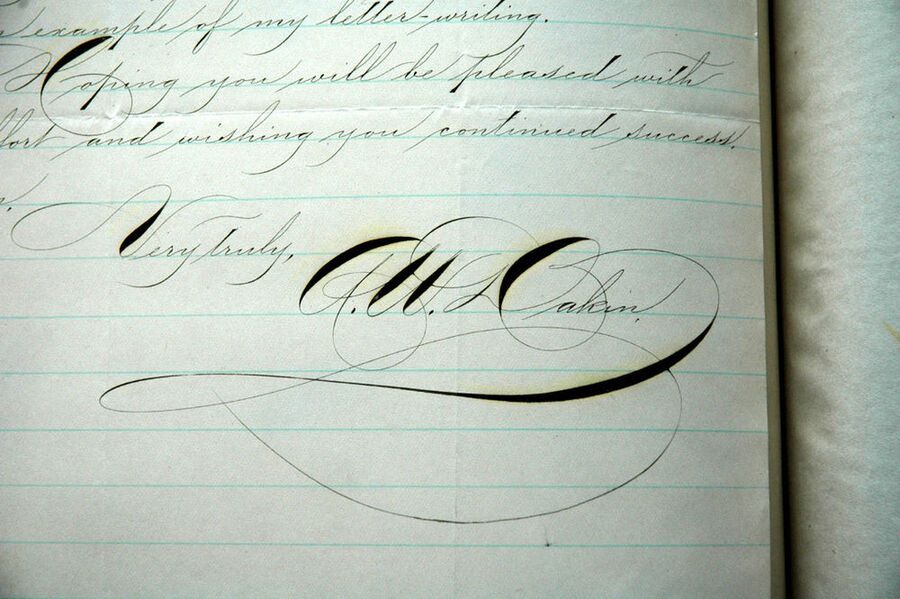 example of my letter-writing.
Hoping you will be pleased with
and wishing you continued success.
Very truly,
A. W. Dakin.